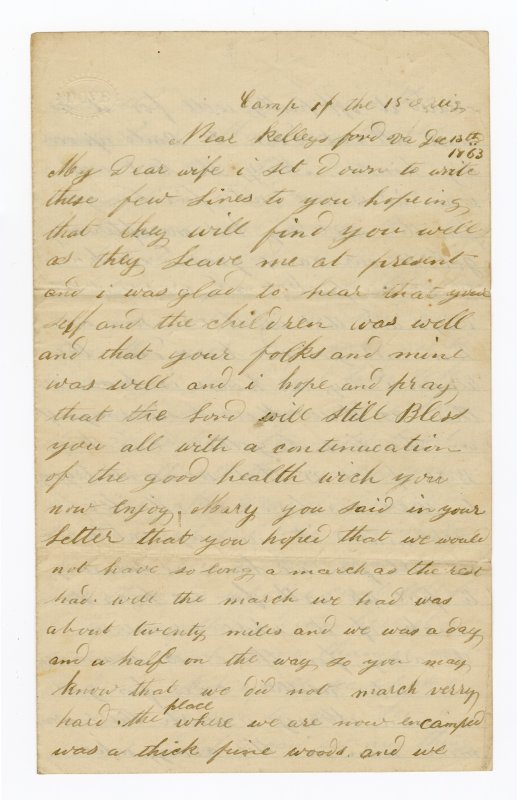 Camp of the 15th
Near Kelleys ford va Dec 13th
1863
My Dear wife i set down to write
these few lines to you hopeing
that they will find you well
as they leave me at present
and i was glad to hear that your
self and the children was well
and that your folks and mine
was well and i hope and pray
that the Lord will still Bless
you all with a continueation
of the good health wich you
now enjoy. Mary you said in your
letter that you hoped that we would
not have so long a march as the rest
had. well the march we had was
about twenty miles and we was a day
and a half on the way so you may
know that we did not march verry
place
hard. the where we are now encamped
was a thick pine woods. and we